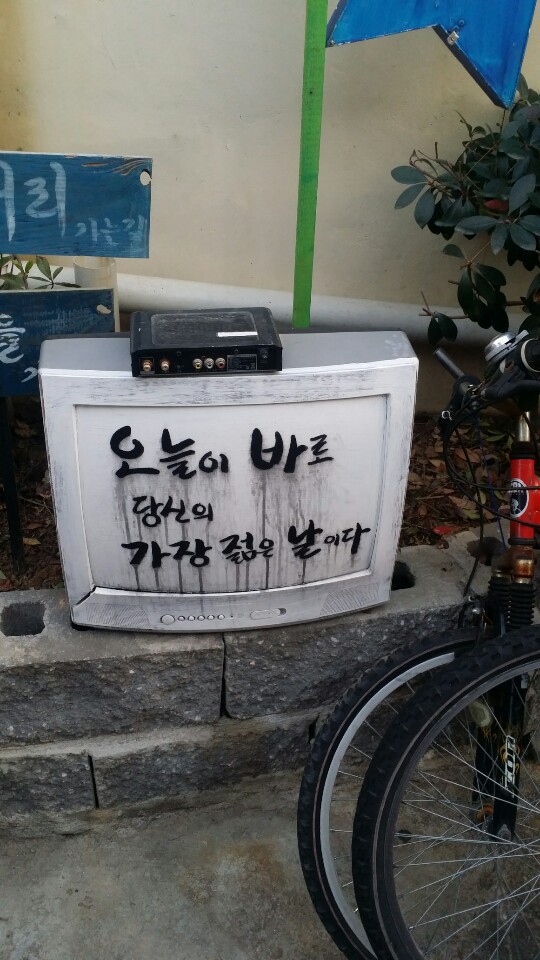 리 가는길
들
오늘이 바로
당신의
가장 젊은 날이다